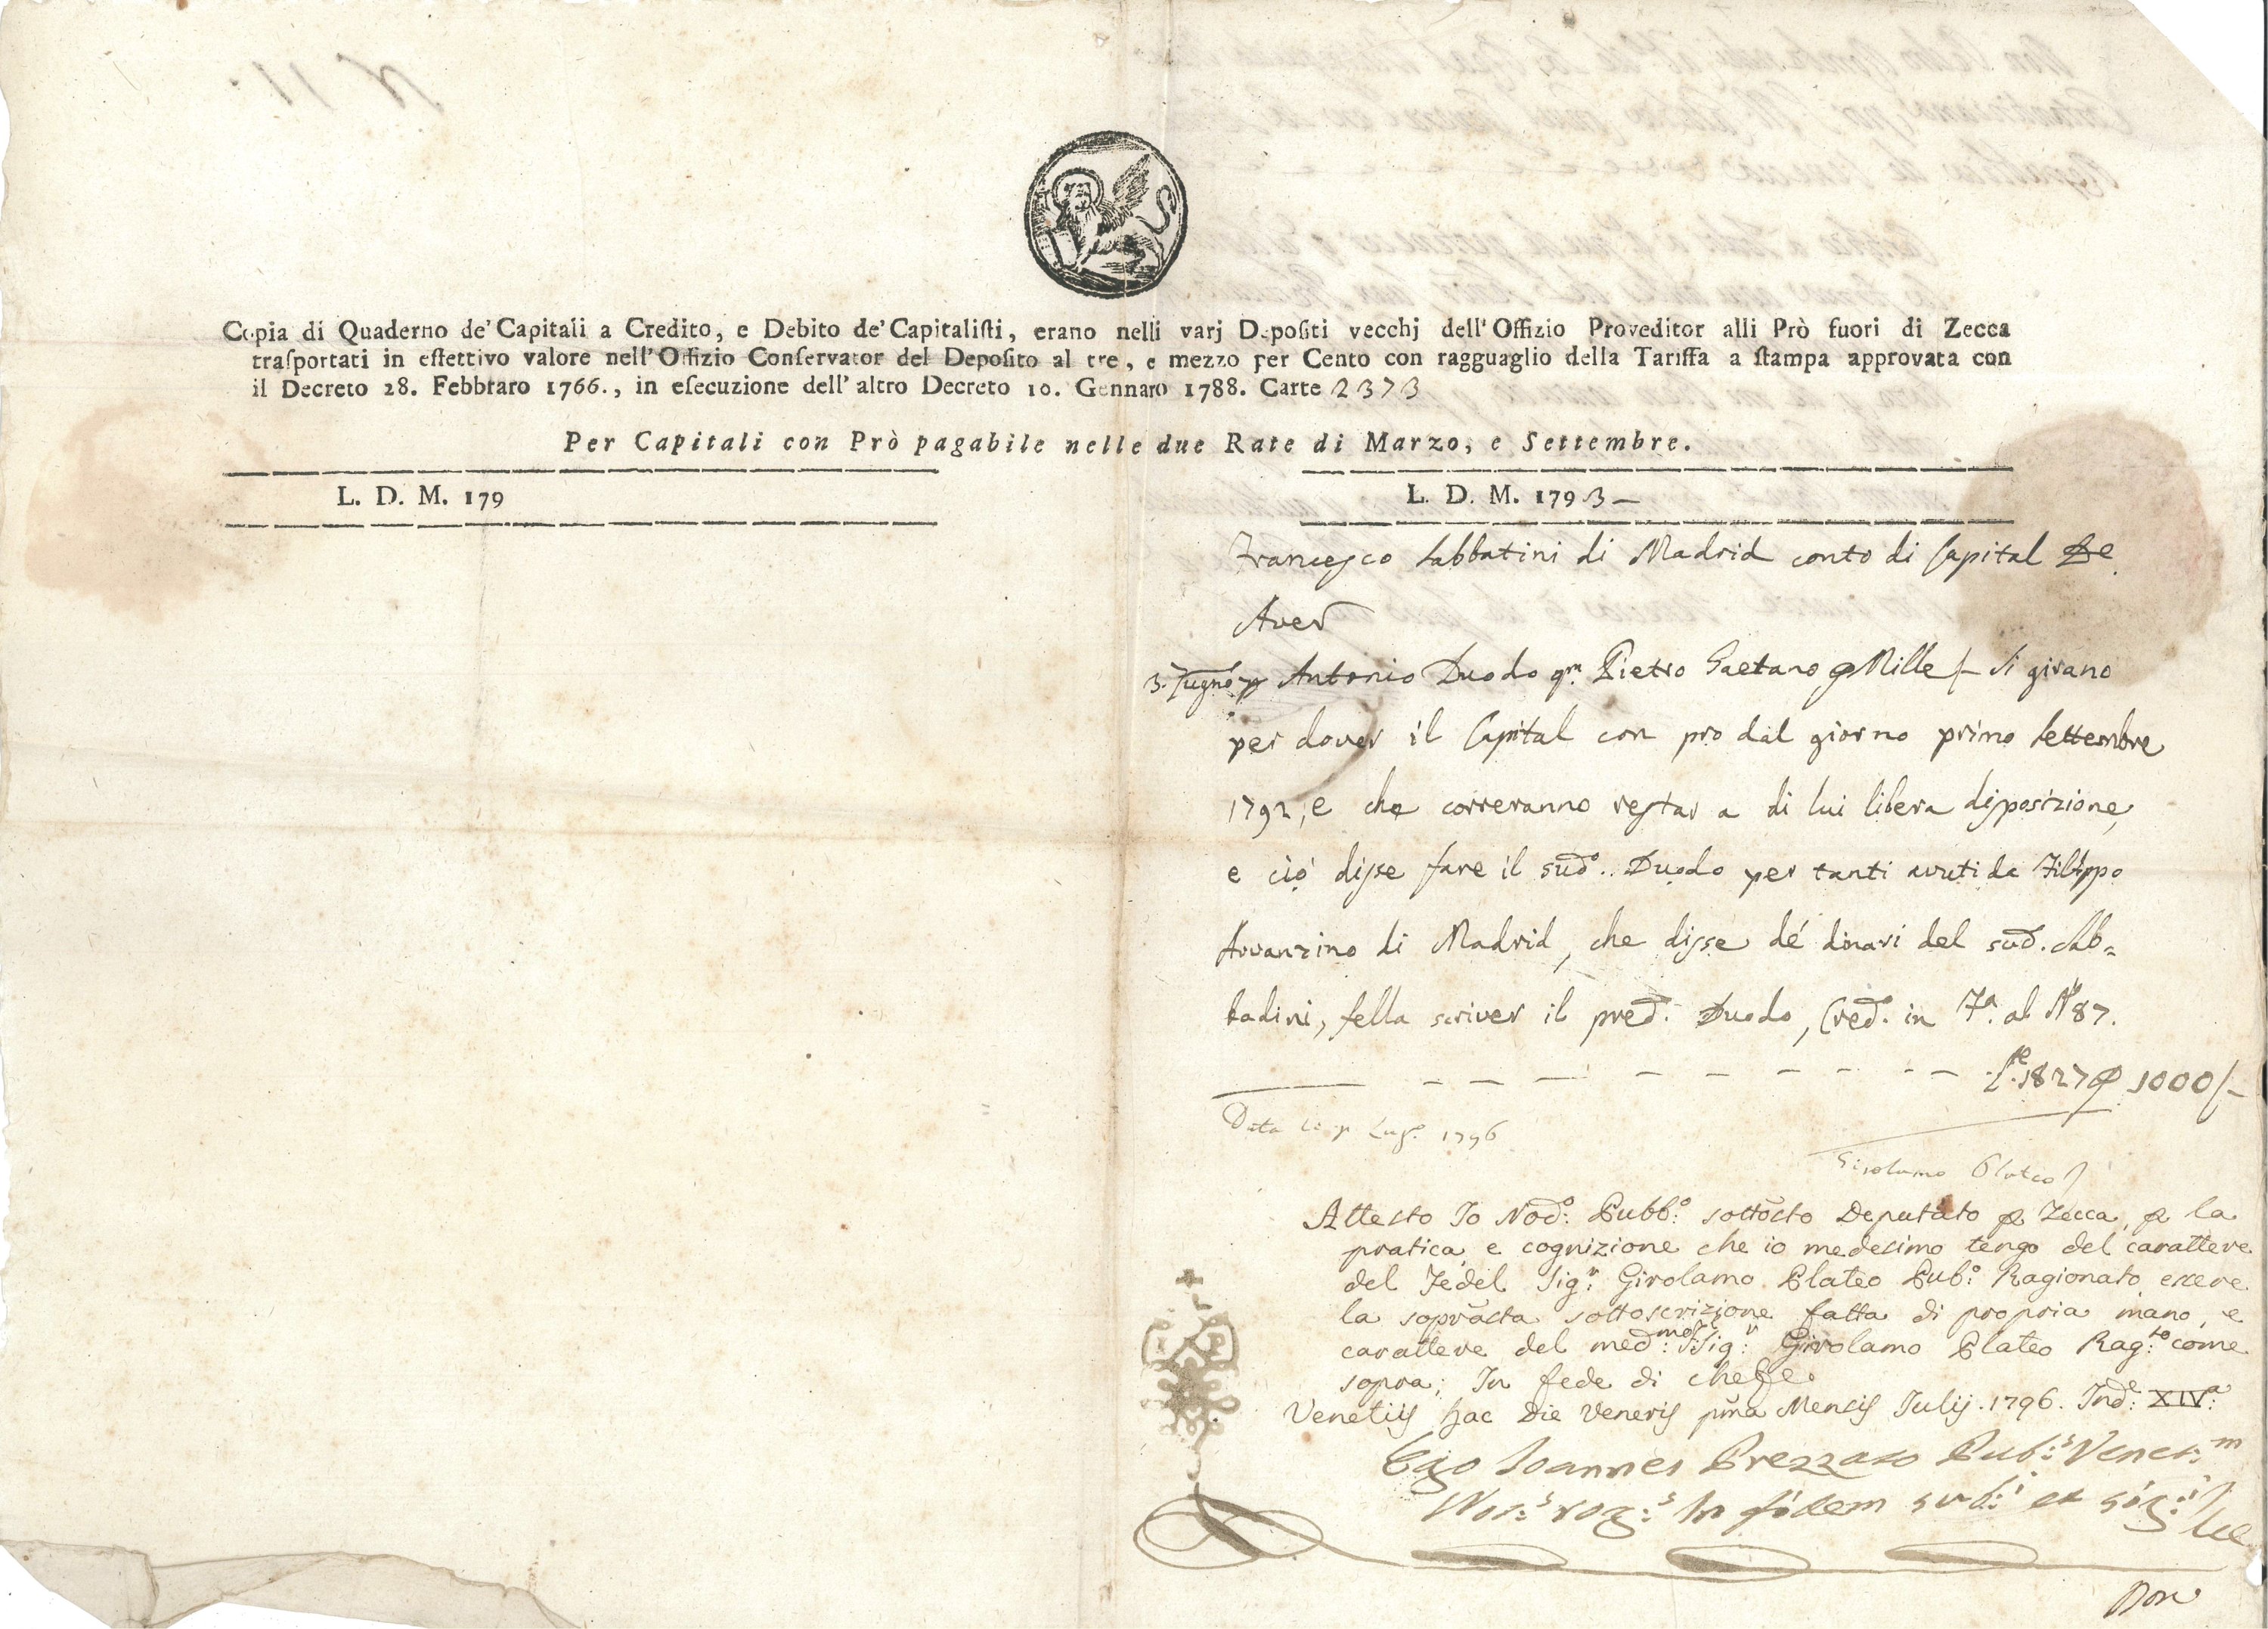 Copia di Quaderno de' Capitali a Credito, e Debito de' Capitaliſti, erano nelli varj Depoſiti vecchj dell' Offizio Proveditor alli Prò fuori di Zecca
traſportati in effettivo valore nell' Offizio Conſervator del Depoſito al tre, e mezzo per Cento con ragguaglio della Tariffa a ſtampa approvata con
il Decreto 28. Febbraro 1766., in eſecuzione dell' altro Decreto 10. Gennaro 1788. Carte 2373
Per Capitali con Prò pagabile nelle due Rate di Marzo, e Settembre.
L. D. M. 179
L. D. M. 1793
Francesco Sabbatini di Madrid conto di Capital De
Aver
3. Zugno Antonio Duodo qm. Pietro Gaetano Mille si girano
per dover il Capital con pro dal giorno primo Settembre
1792, e che correranno restar a di lui libera disposizione,
e ciò disse fare il sud.o Duodo per tanti avuti da Filippo
Avvanzino di Madrid, che disse de' dinari del sud. Sab=
badini, fella scriver il pred. Duodo, Cred. in Fa. al No 87.
1827 1000/-
Data Lug.o 1796
Girolamo Plateo
Attesto Io Nod.o Pubb.o sottosto Deputato p Zecca, p la
pratica, e cognizione che io medesimo tengo del carattere
del Fedel Sig.r Girolamo Plateo Pub.o Ragionato essere
la soprasta sottoscrizione fatta di propria mano, e
carattere del med.mo Sig.r Girolamo Plateo Rag.to come
sopra; In fede di che
Venetiis hac Die Veneris pma Mensis Julij. 1796. Ind.e XIVa
Ego Joannes Brezzaso Pub.s Venet.m
Not.s rog.s In fidem sub.i et sig.i
Noi